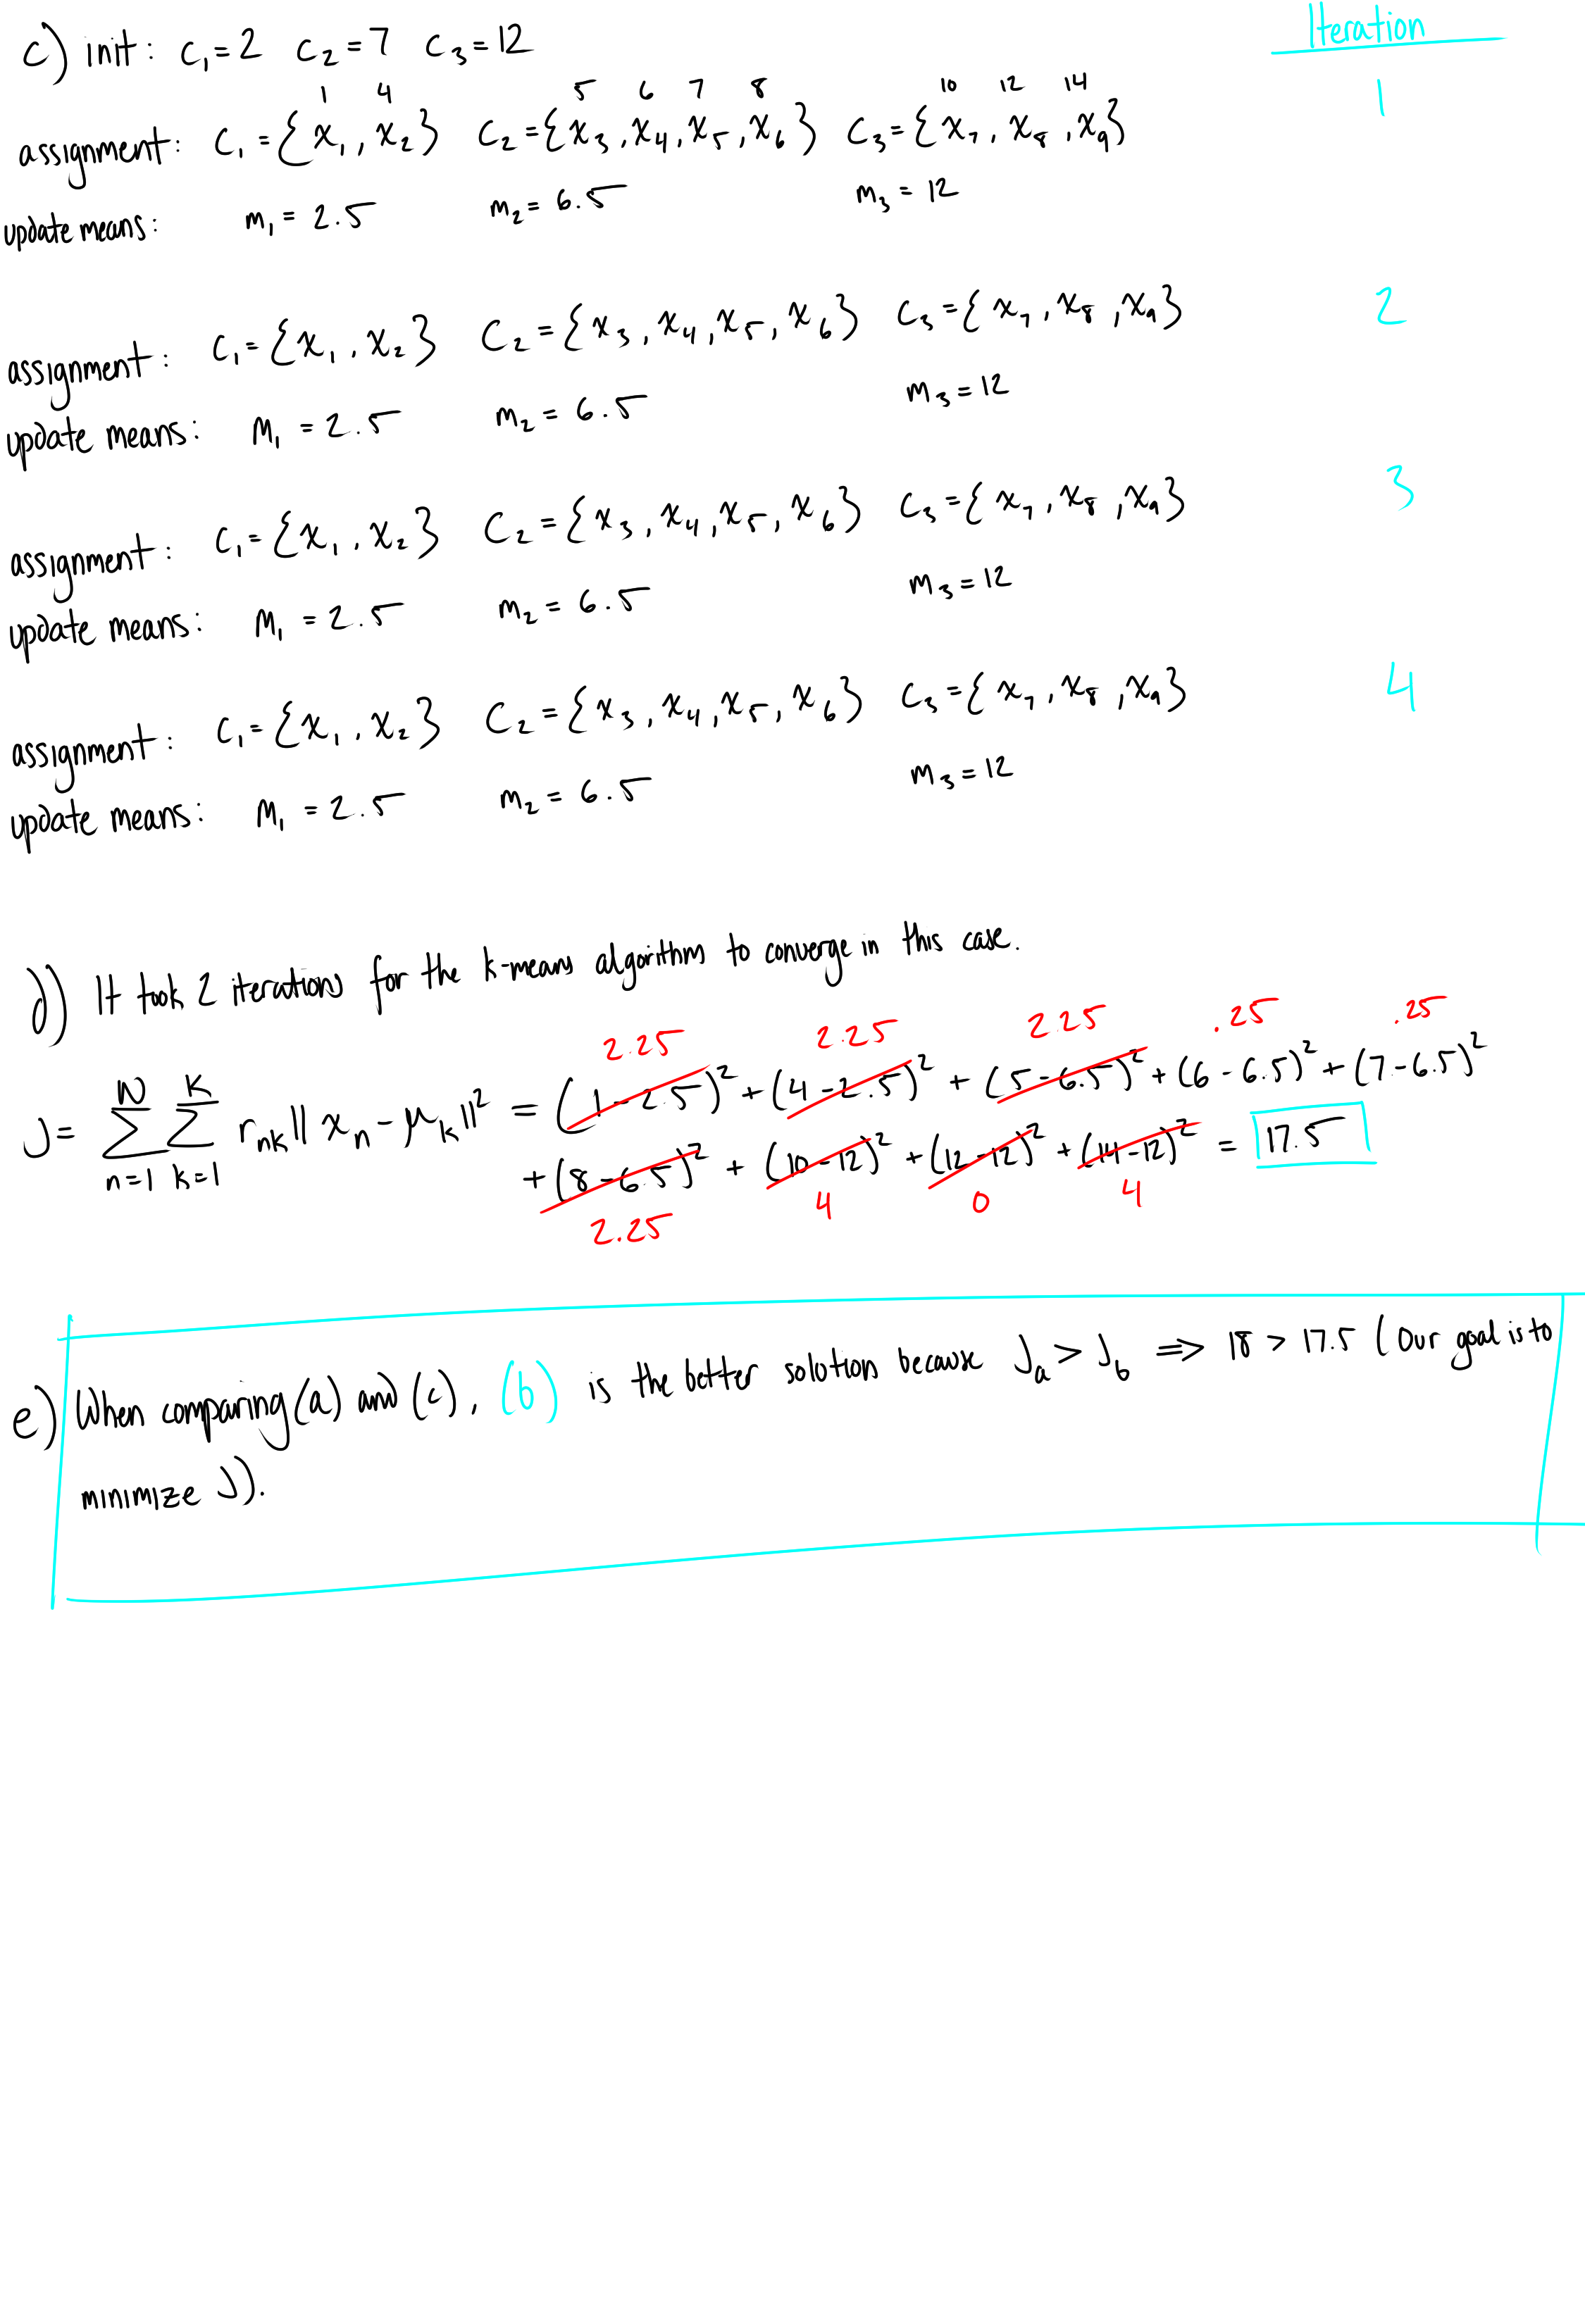 Iteration
c) init: c₁=2 c₂=7 c₃=12
1
1 4 5 6 7 8 10 12 14
assignment: C₁={x₁, x₂} C₂={x₃, x₄, x₅, x₆} C₃={x₇, x₈, x₉}
update means: m₁ = 2.5 m₂ = 6.5 m₃ = 12
2
assignment: C₁={x₁, x₂} C₂={x₃, x₄, x₅, x₆} C₃={x₇, x₈, x₉}
update means: m₁ = 2.5 m₂ = 6.5 m₃ = 12
3
assignment: C₁={x₁, x₂} C₂={x₃, x₄, x₅, x₆} C₃={x₇, x₈, x₉}
update means: m₁ = 2.5 m₂ = 6.5 m₃ = 12
4
assignment: C₁={x₁, x₂} C₂={x₃, x₄, x₅, x₆} C₃={x₇, x₈, x₉}
update means: m₁ = 2.5 m₂ = 6.5 m₃ = 12
d) It took 2 iterations for the k-means algorithm to converge in this case.
2.25 2.25 2.25 .25 .25
J = Σ_{n=1}^{N} Σ_{k=1}^{K} r_{nk} || x_n - μ_k ||² = (1-2.5)² + (4-2.5)² + (5-6.5)² + (6-6.5)² + (7-6.5)²
+ (8-6.5)² + (10-12)² + (12-12)² + (14-12)² = 17.5
2.25 4 0 4
e) When comparing (a) and (c), (b) is the better solution because J_a > J_b ⇒ 18 > 17.5 (Our goal is to
minimize J).